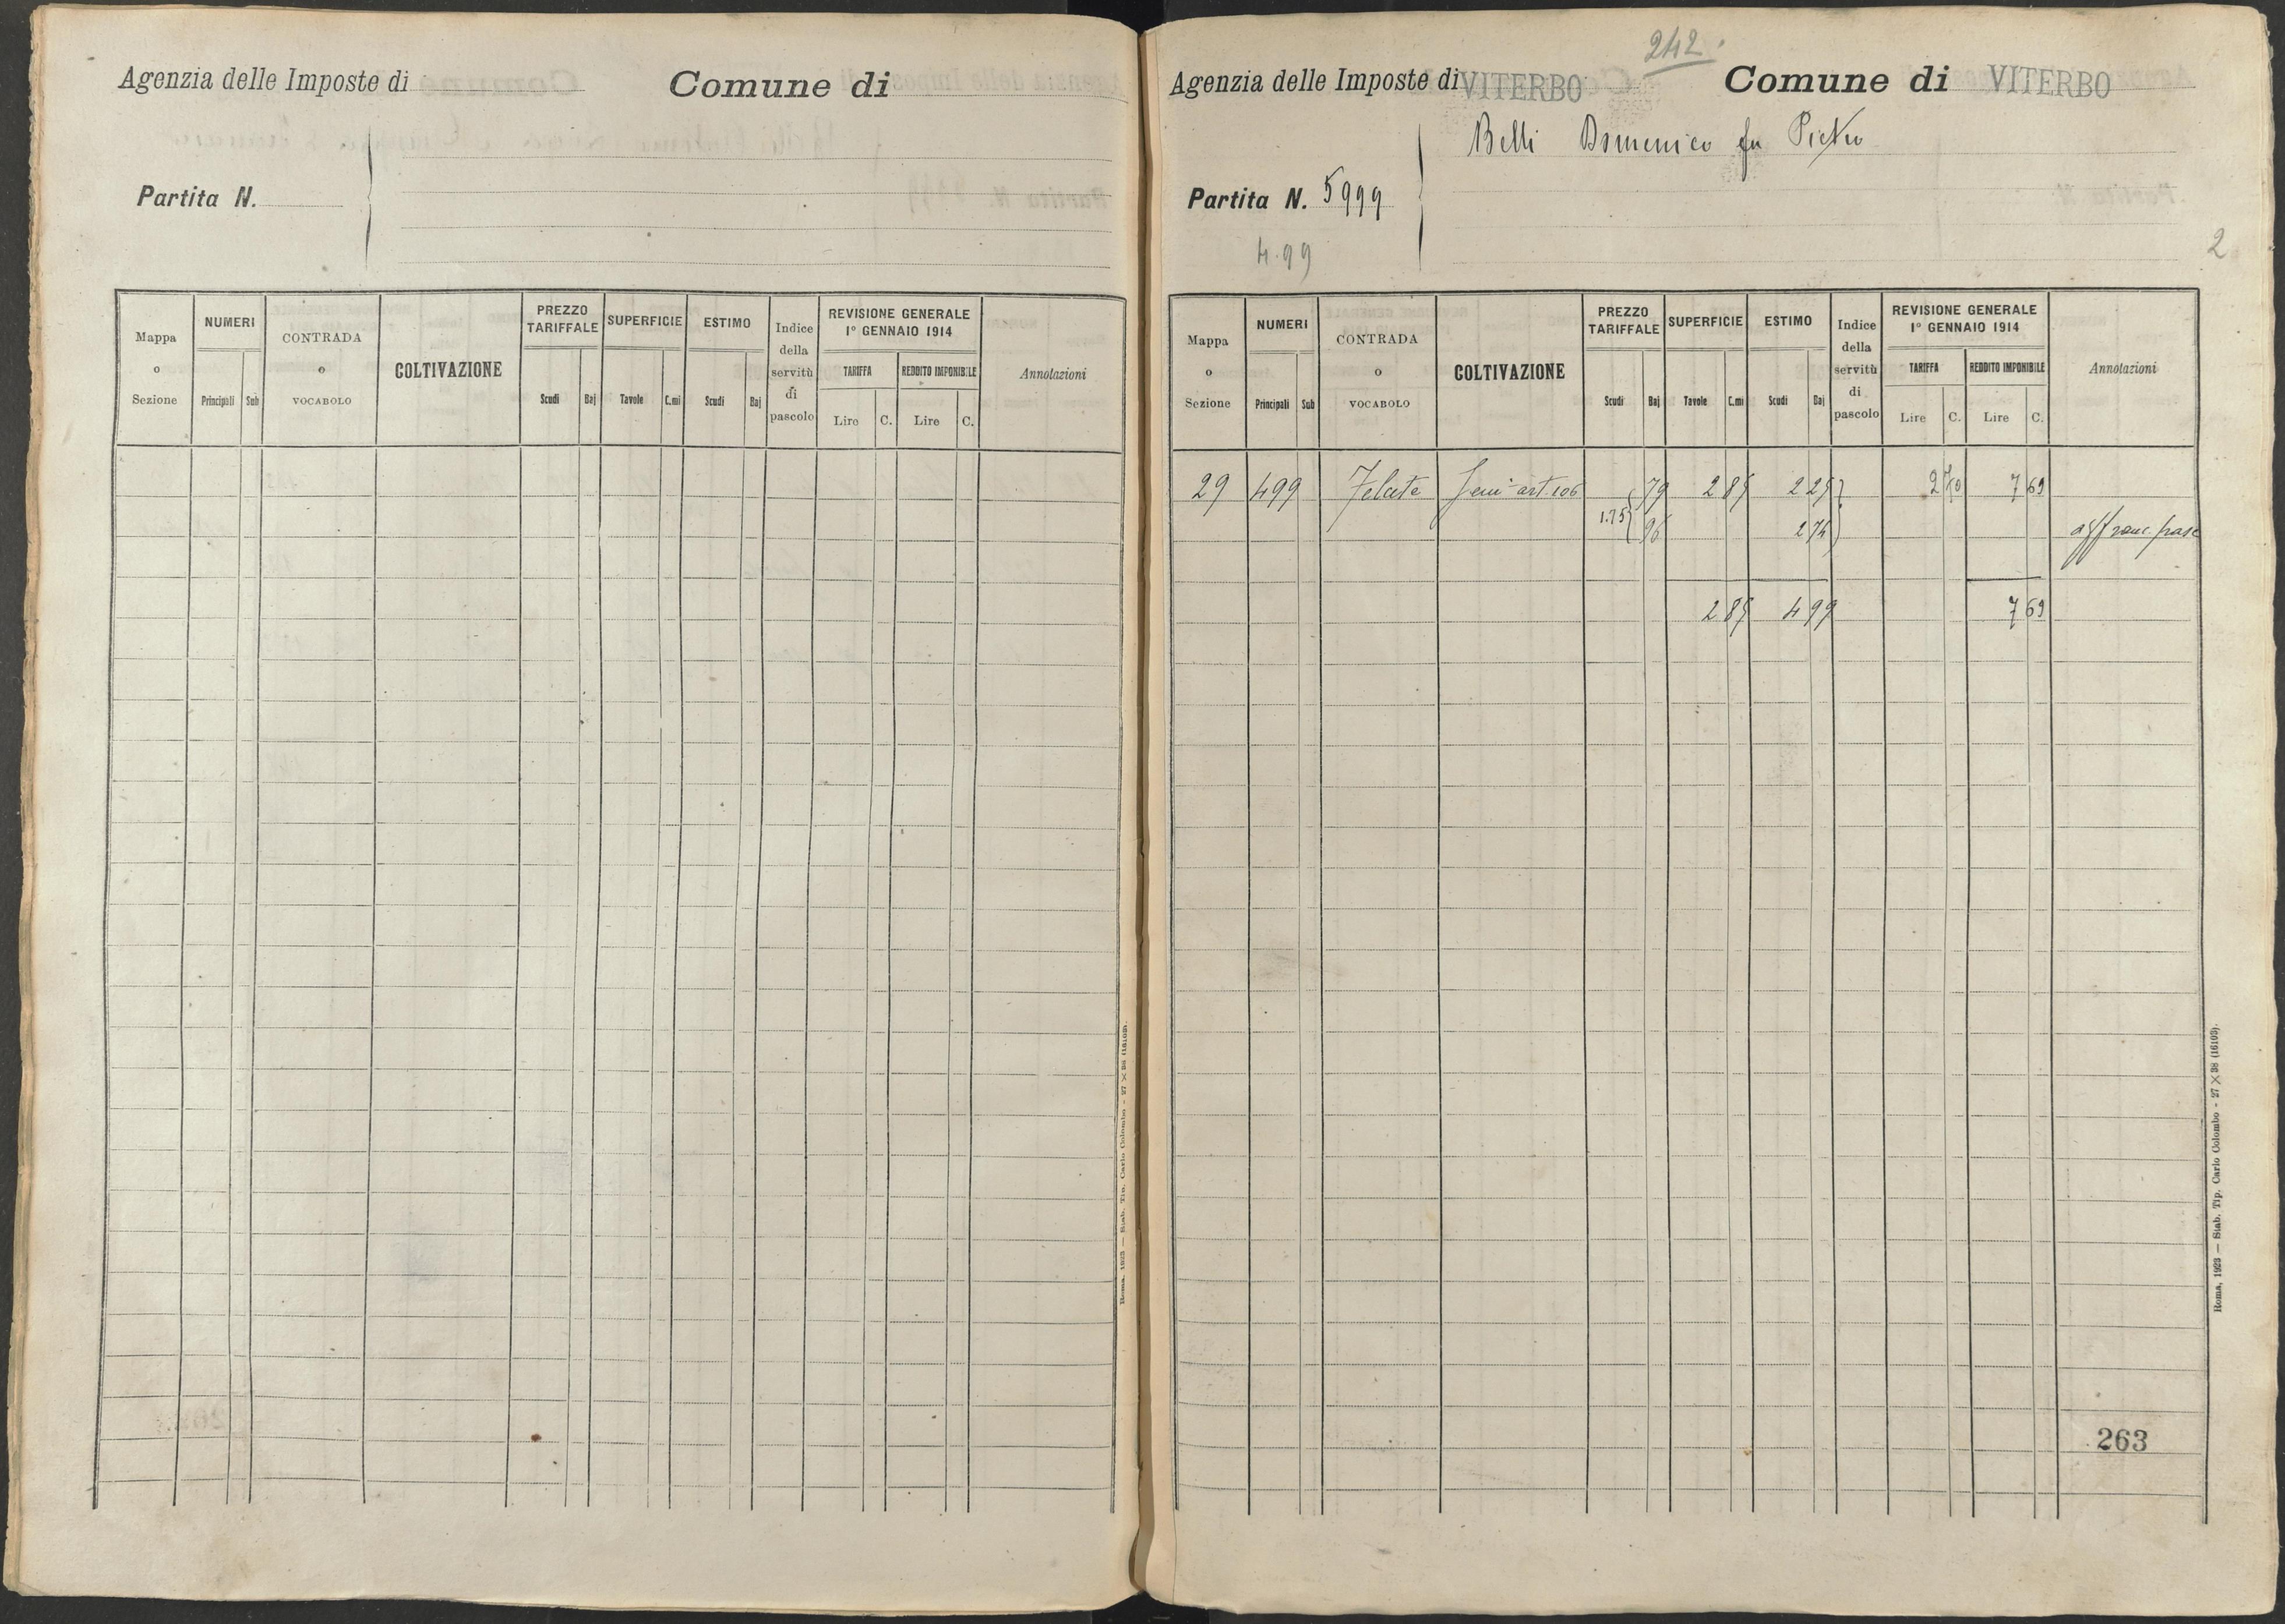 Agenzia delle Imposte di
Comune di
Partita N.
Mappa o Sezione
NUMERI
Principali Sub
CONTRADA o VOCABOLO
COLTIVAZIONE
PREZZO TARIFFALE
Scudi Baj
SUPERFICIE
Tavole C.mi
ESTIMO
Scudi Baj
Indice della servitù di pascolo
REVISIONE GENERALE
1° GENNAIO 1914
TARIFFA REDDITO IMPONIBILE
Lire C. Lire C.
Annotazioni
Roma, 1923 — Stab. Tip. Carlo Colombo - 27 × 38 (16103).
242
Agenzia delle Imposte di VITERBO Comune di VITERBO
Belli Domenico fu Pietro
Partita N. 5999
4.99
2
Mappa o Sezione
NUMERI
Principali Sub
CONTRADA o VOCABOLO
COLTIVAZIONE
PREZZO TARIFFALE
Scudi Baj
SUPERFICIE
Tavole C.mi
ESTIMO
Scudi Baj
Indice della servitù di pascolo
REVISIONE GENERALE
1° GENNAIO 1914
TARIFFA REDDITO IMPONIBILE
Lire C. Lire C.
Annotazioni
29 499 79 2 85 2 25 2 70 7 69
1.75 96 2 74 affranc. pasc
2 85 4 99 7 69
263
Roma, 1923 — Stab. Tip. Carlo Colombo - 27 × 38 (16103).